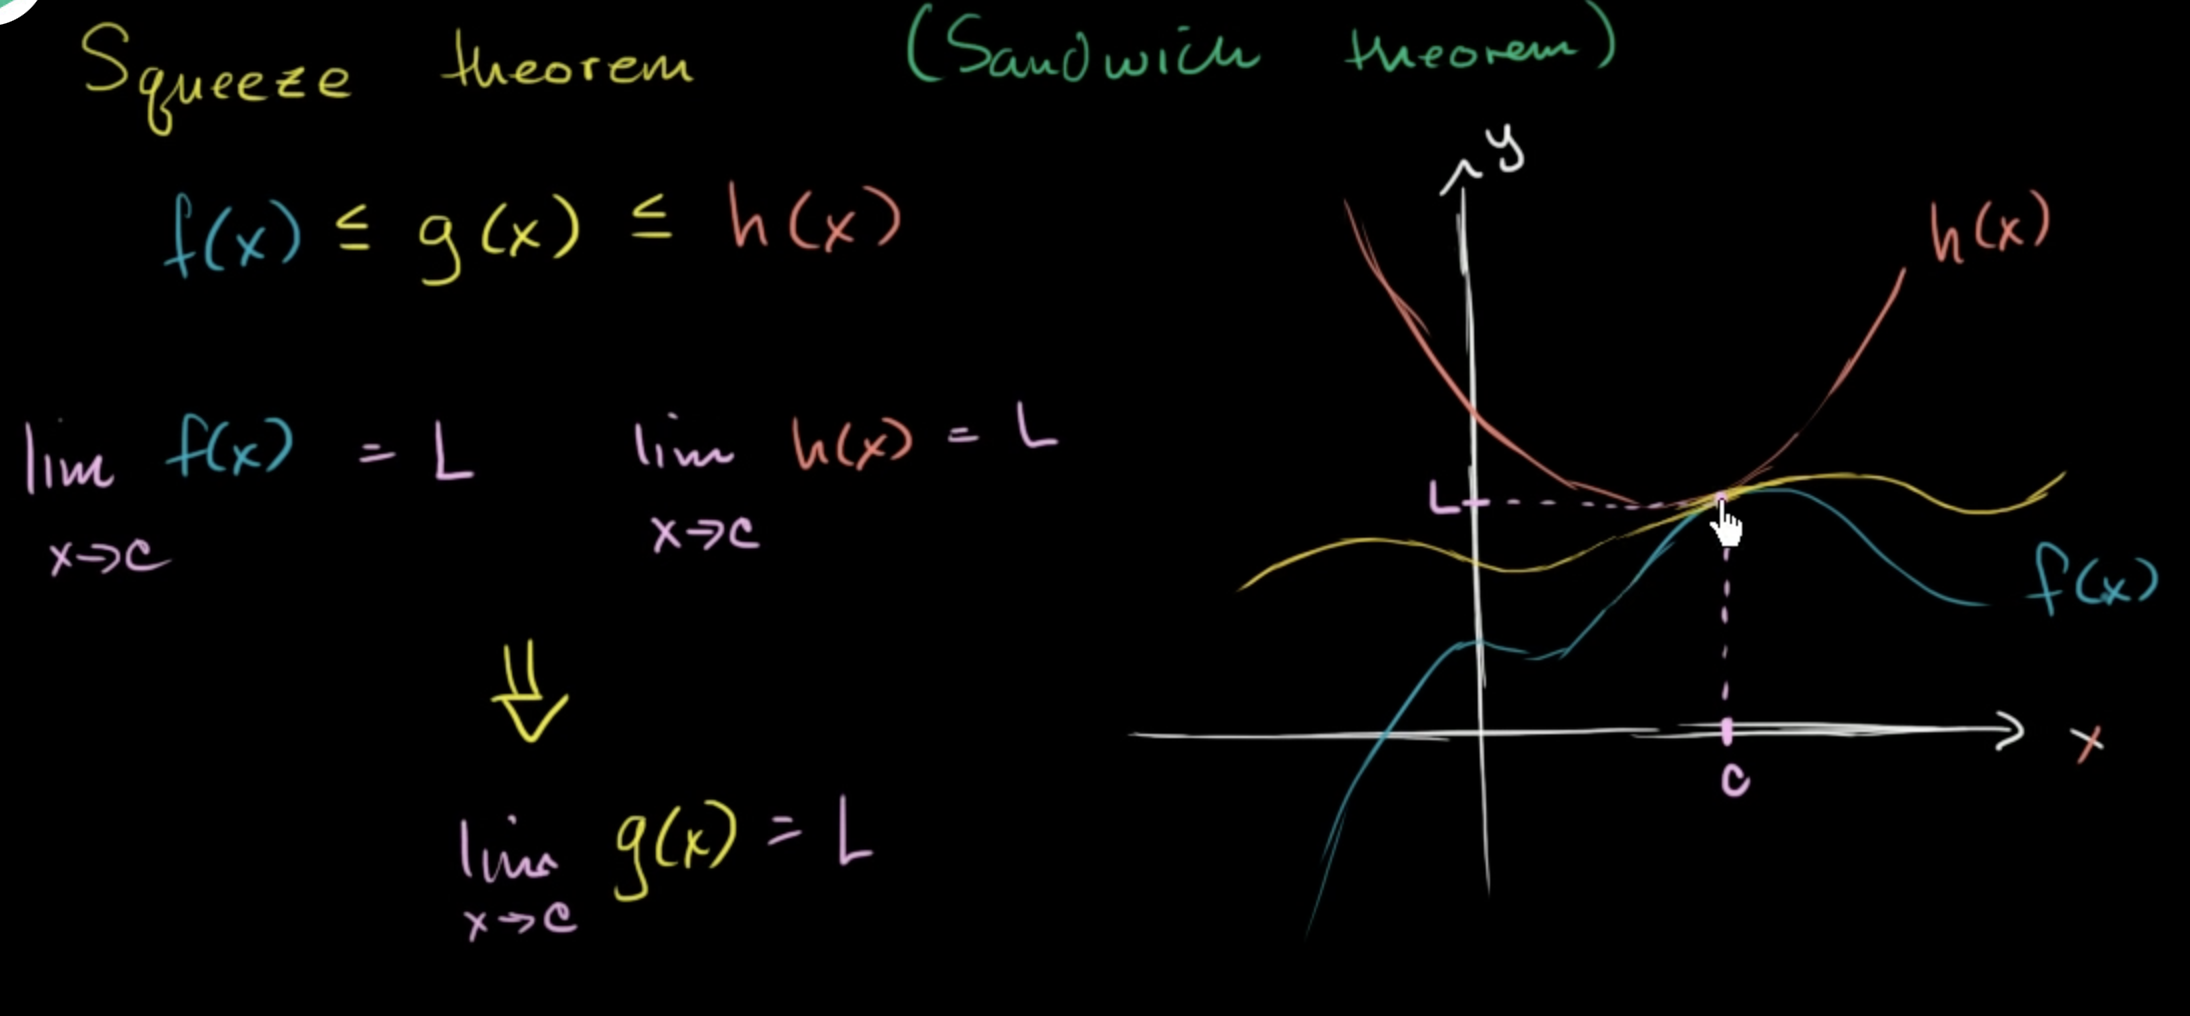 Squeeze theorem (Sandwich theorem)
f(x) ≤ g(x) ≤ h(x)
lim f(x) = L
x→c
lim h(x) = L
x→c
⇓
lim g(x) = L
x→c
y
h(x)
L
f(x)
x
c